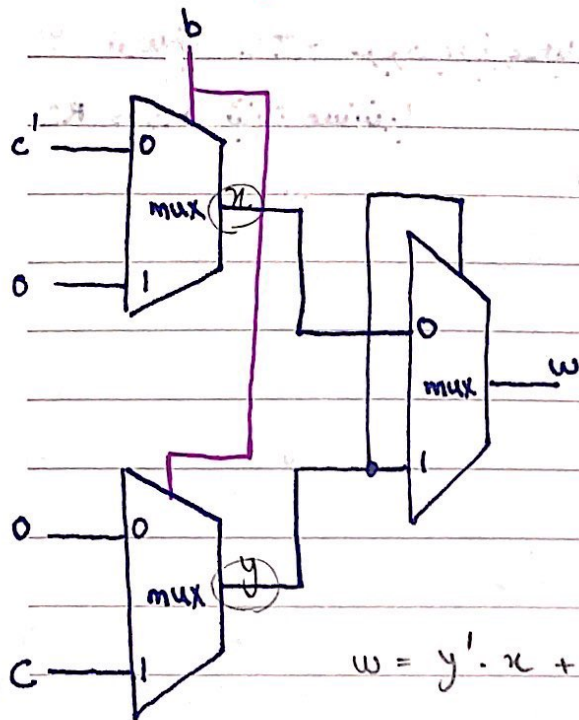 b
c'
0
mux
x
0
1
0
mux
w
1
0
0
mux
y
C
1
w = y'. x +